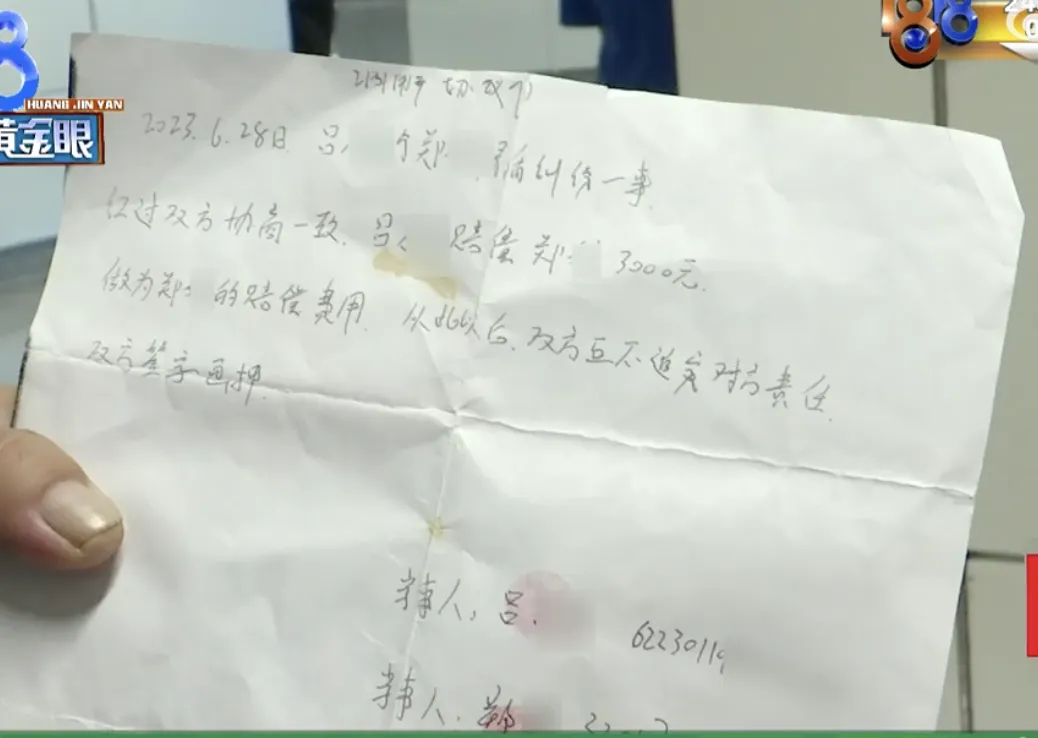 HUANG JIN YAN
黄金眼
2023.6.28日.吕 郑 纠纷一事.
经过双方协商一致.吕 赔偿 郑 3000元.
做为郑 的赔偿费用.从此以后.双方互不追究对方责任.
双方签字画押.
当事人:吕. 6223011
当事人.郑